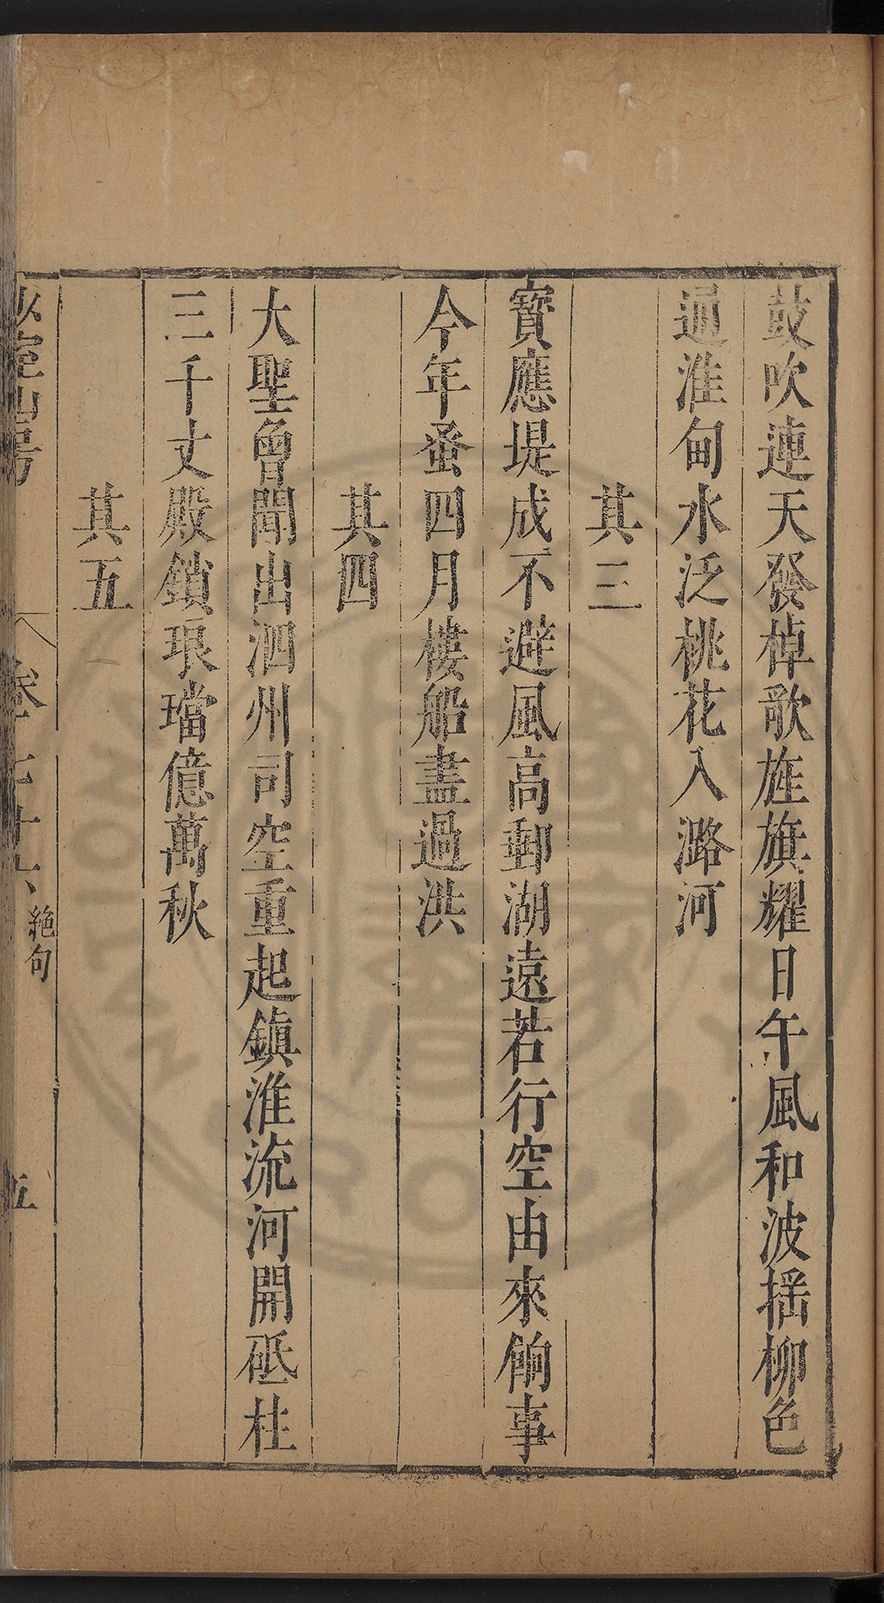 鼓吹連天發棹歌旌旗耀日午風和波揺柳色
逥淮甸水泛桃花入潞河
其三
寳應堤成不避風高郵湖遠若行空由來餉事
今年蚤四月樓船盡過洪
其四
大聖曾聞出泗州司空重起鎮淮流河開砥柱
三千丈殿鎖琅璫億萬秋
其五
絶句
五